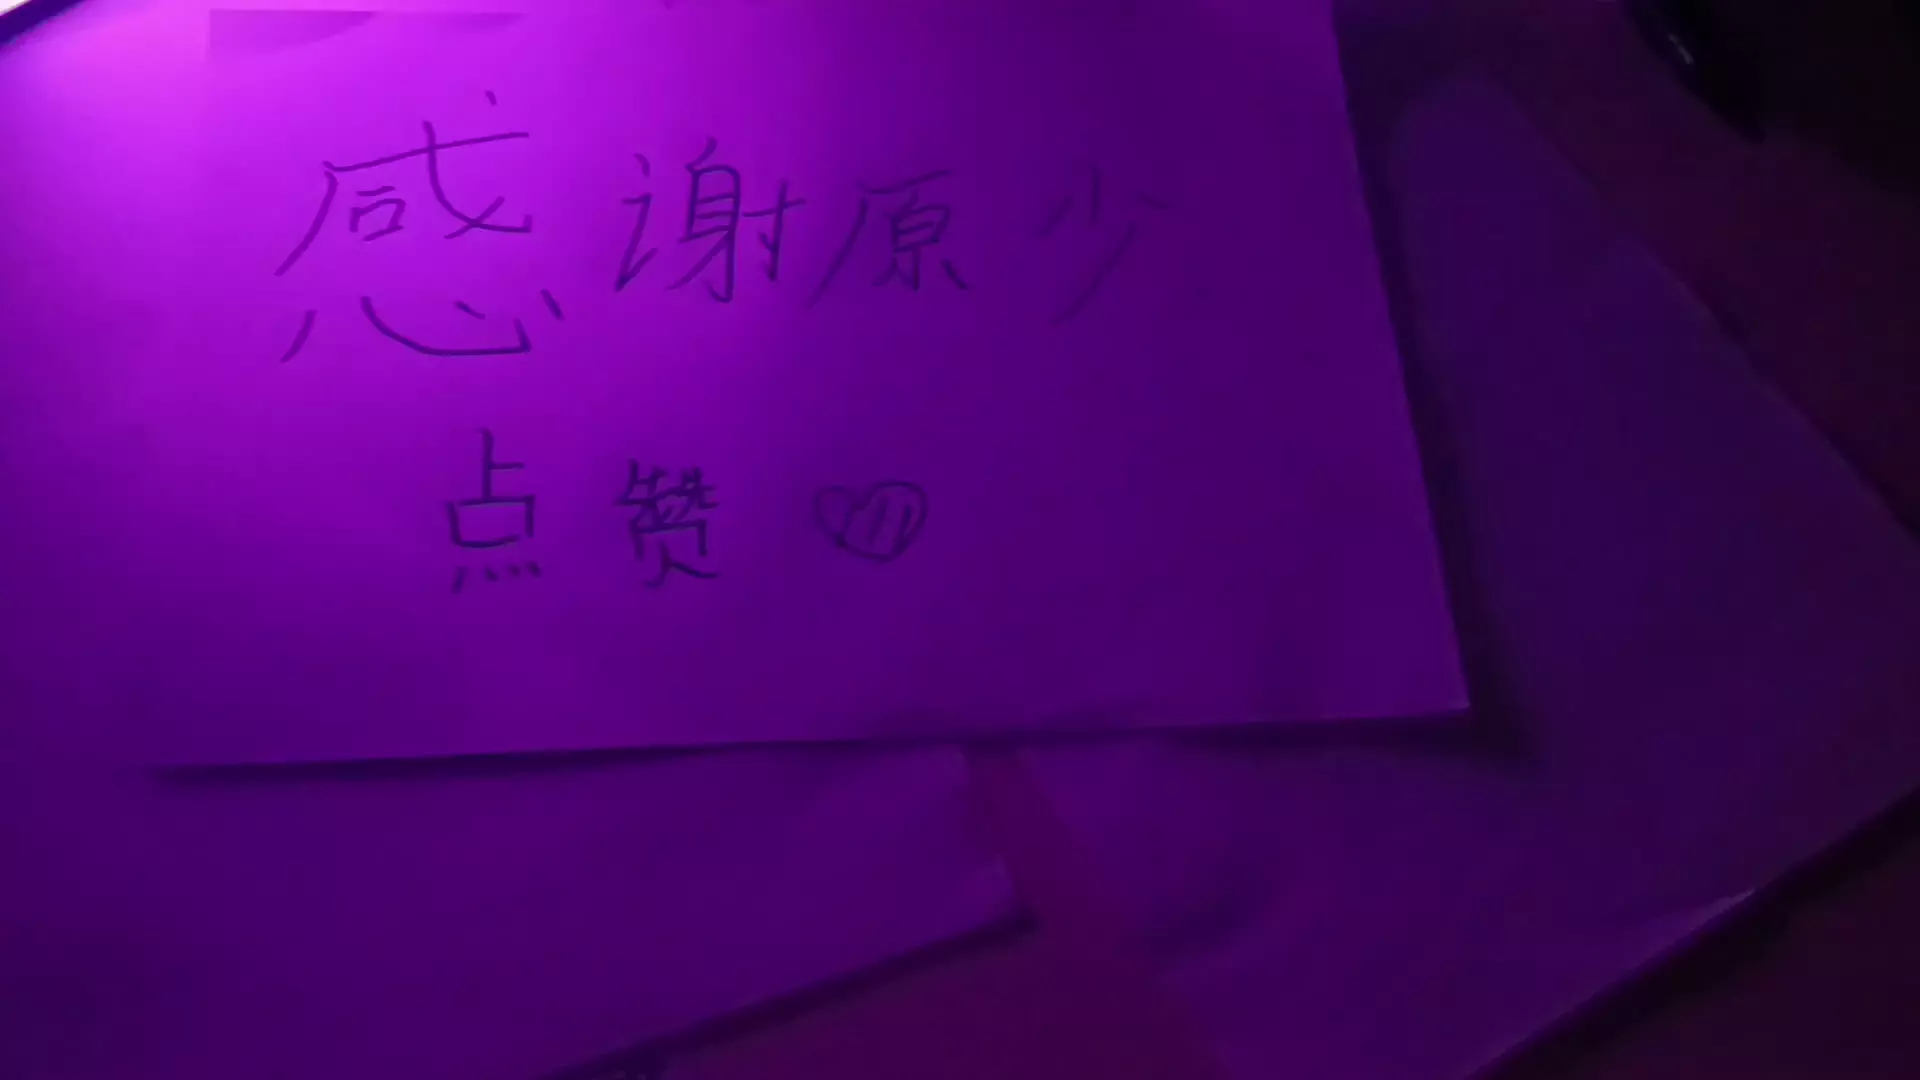 感谢原少
点赞